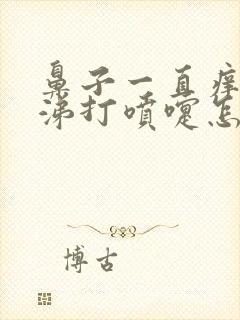 鼻子一直痒
涕打喷嚏怎
博古